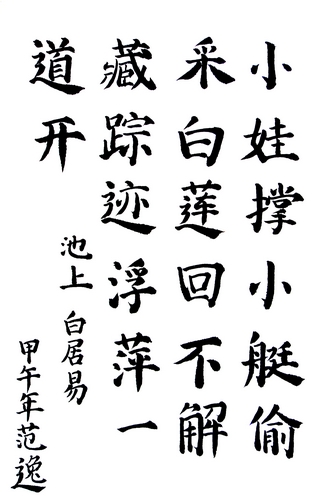 小娃撑小艇偷
采白莲回不解
藏踪迹浮萍一
道开
池上 白居易
甲午年范逸